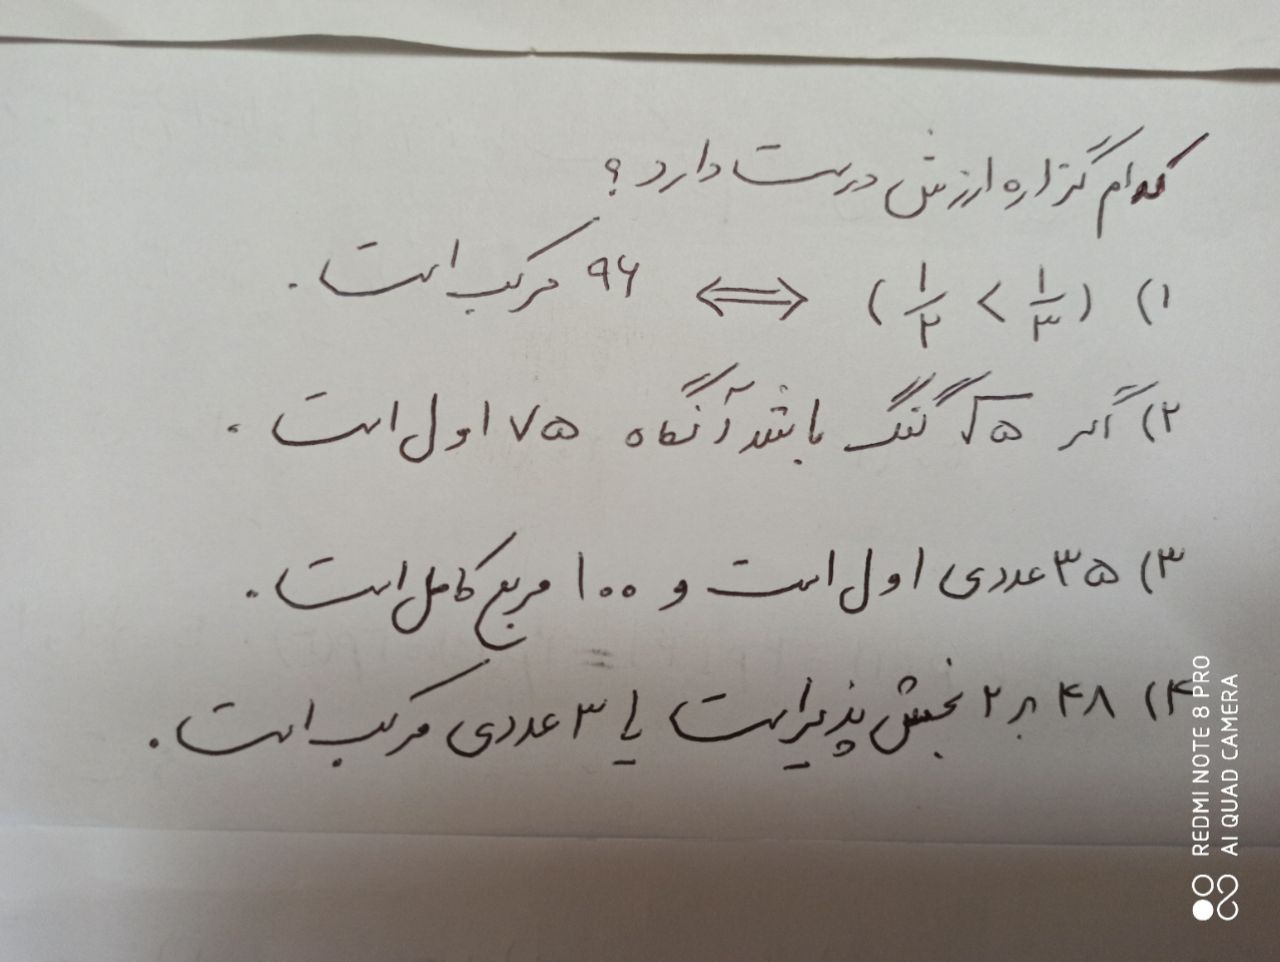 کدام گزاره ارزش درست دارد؟
۱) (۱/۲ < ۱/۳) ⟺ ۹۶ مرکب است.
۲) اگر √۵ گنگ باشد آنگاه ۷۵ اول است.
۳) ۳۵ عددی اول است و ۱۰۰ مربع کامل است.
۴) ۴۸ بر ۲ بخش پذیر است یا ۳ عددی مرکب است.
REDMI NOTE 8 PRO
AI QUAD CAMERA